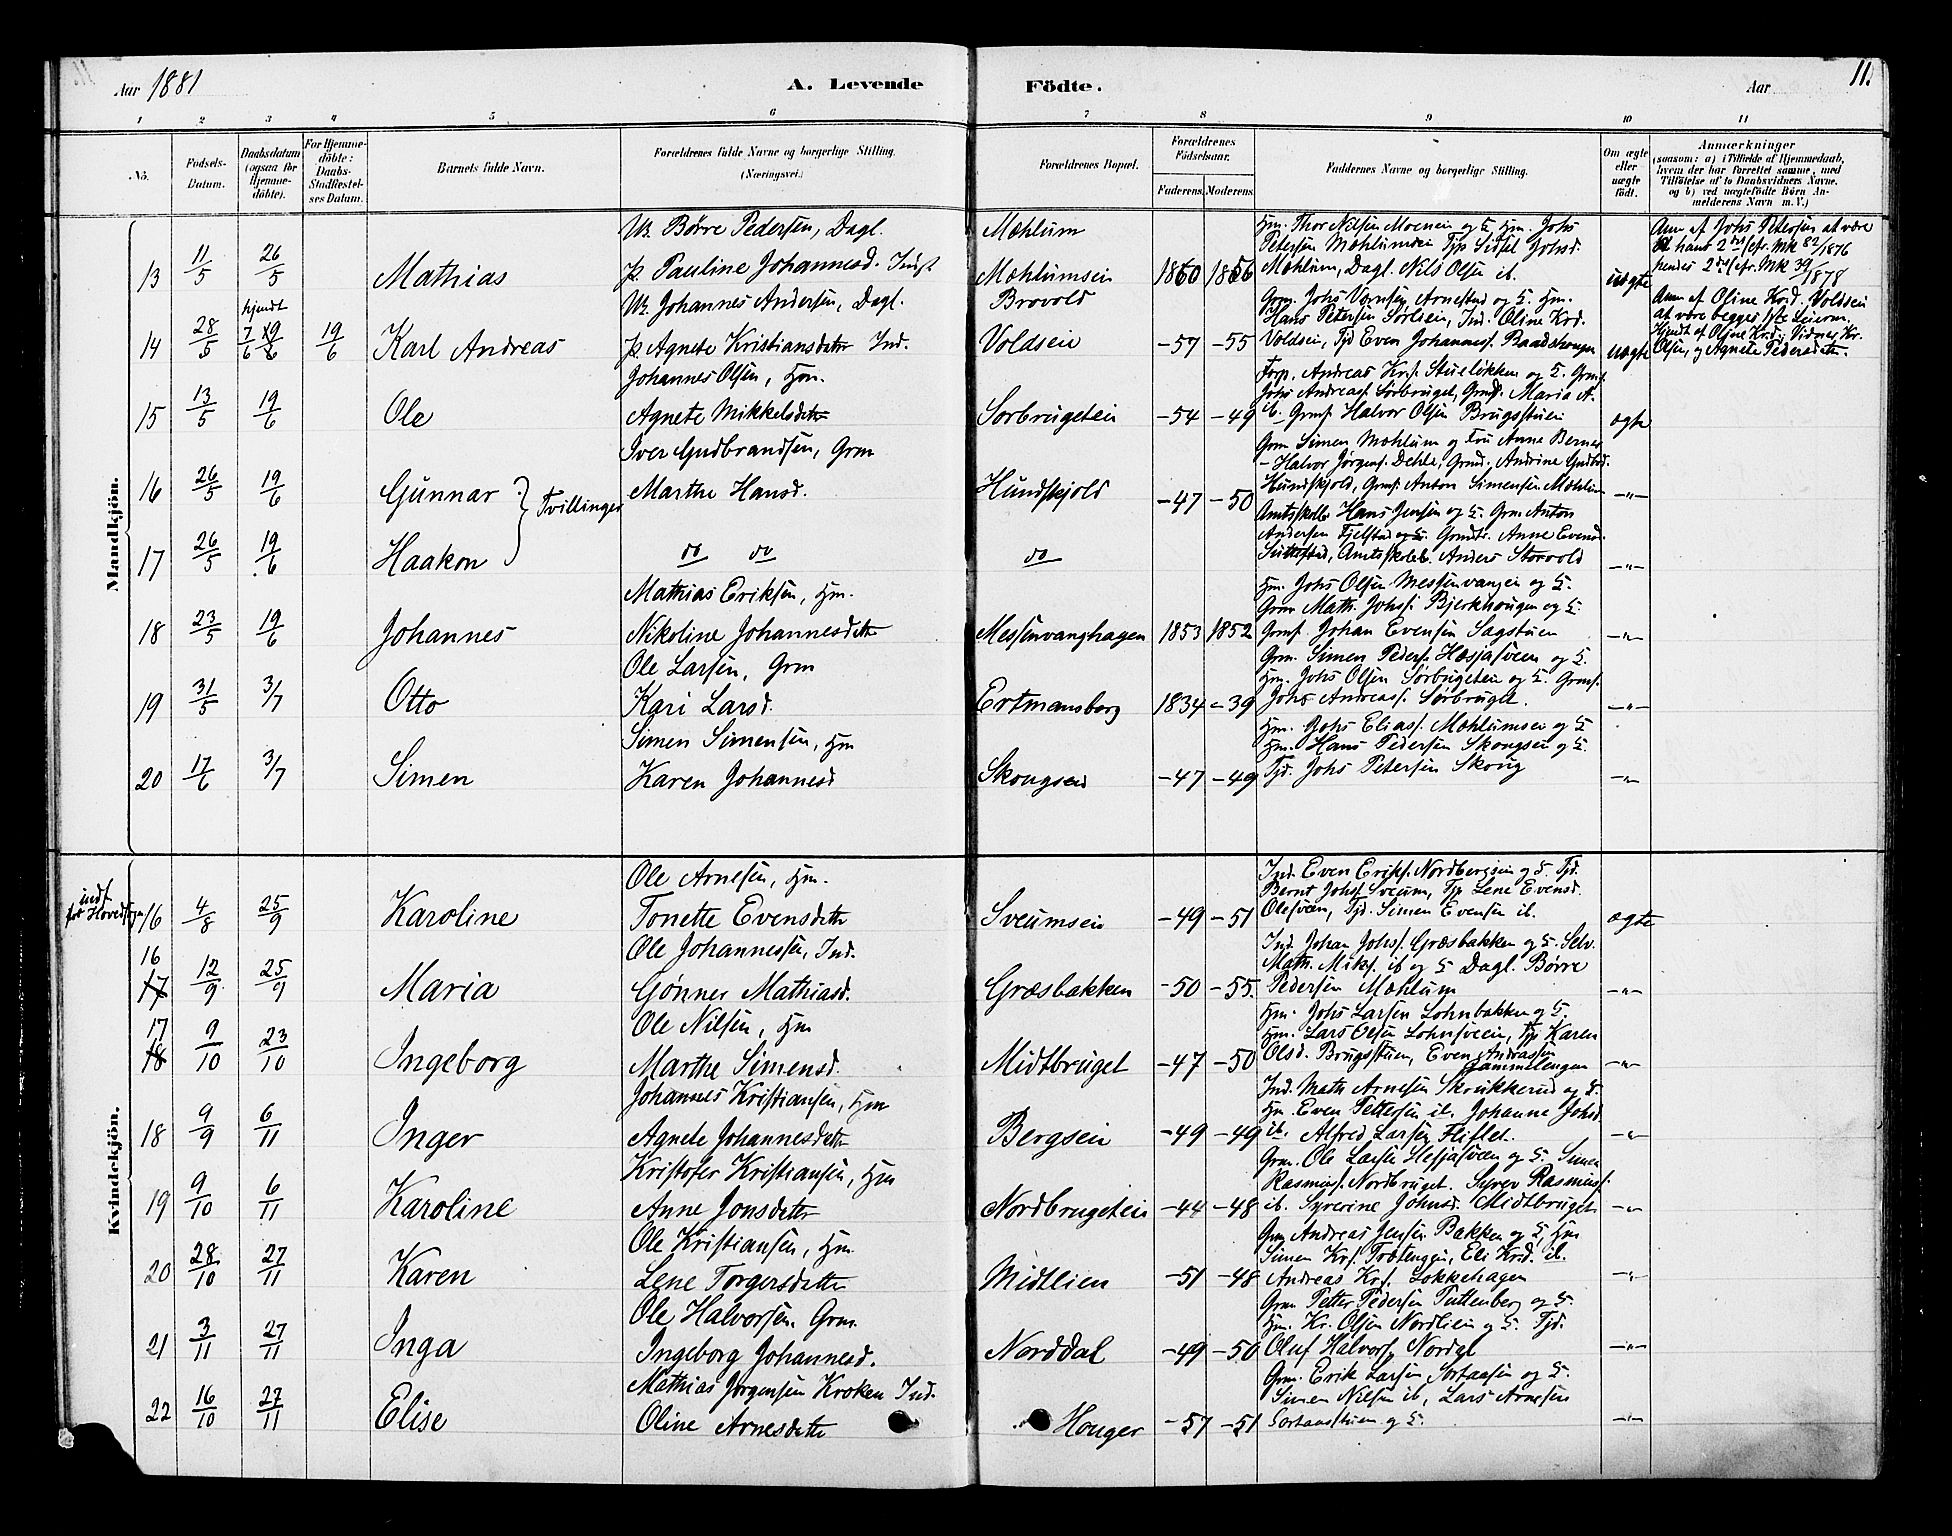 Aar 1881
A. Levende Födte.
Aar
11.
1 2 3 4 5 6 7 8 9 10 11
No.
Födsels-Datum.
Daabsdatum (ogsaa for Hjemme-döbte).
For Hjemme-döbte: Daabs-Stadfæstel-ses Datum.
Barnets fulde Navn.
Forældrenes fulde Navne og borgerlige Stilling. (Næringsvei.)
Forældrenes Bopæl.
Forældrenes Födselsaar.
Faderens. Moderens.
Faddernes Navne og borgerlige Stilling.
Om ægte eller uægte födt.
Anmærkninger (saasom: a) i Tilfælde af Hjemmedaab, hvem der har forrettet samme, med Tilföielse af to Daabsvidners Navne, og b) ved uægtefödte Börn An-melderens Navn m. V.)
Mandkjön.
13 11/5 26/5 Mathias
U. Børre Pedersen, Dagl.
P. Pauline Johannesd. Indst
Mæhlum
Mæhlumsei 1860 1856
Hm. Thor Nilsen Moenei og H. Hm. Johs
Petersen Mæhlumsei Pige Sidsel Johsd.
Mæhlum, Dagl. Nils Olsen ib.
uægte
Anm. af Johs Petersen at være
hans 2det/efr. Mk 82/1876
hendes 2det/efr. Mk 39/1878
14 28/5 hjemdt 7/6 19/6 19/6 Karl Andreas
U. Johannes Andersen, Dagl.
P. Agnete Kristiansdatter Ind.
Brovold
Voldsei -57 -55
Hans Petersen Sørlien, Ind. Oline Krd.
Voldsei, Tjd Even Johanness. Baadshougen
uægte
Anm. af Oline Krd. Voldsei
at være begges 1ste Leierm.
Hjemdt af Oline Krd., Vidner Kr.
Olsen, og Agnete Pedersdatter.
15 13/5 19/6 Ole
Johannes Olsen, Hm.
Agnete Mikkelsdatter
Sorbrugetein -54 -49
Forp. Andreas Krs. Stueløkken og H. Grmf.
Johs Andreass. Sørbruget, Grmd. Maria A.
ib. Grmf. Halvor Olsen Brugsstuen
ægte
16 26/5 19/6 Gunnar
Tvillinger
Iver Gudbrandsen, Grm
Marthe Hansd.
Hundskjold -47 -50
Grm Simen Mæhlum og Fru Anne Berner
- Halvor Jørgens. Dehle, Grmd. Andrine Gudbrd.
Hundskjold, Grmf. Anton Simensen Mæhlum
-"-
17 26/5 19/6 Haakon
do do
do
Amtsskolb. Hans Jensen og H. Grm Anton
Andersen Fjelstad og H. Grmdtr. Anne Evensd.
Amtsskoleb. Anders Storvold
-"-
18 23/5 19/6 Johannes
Mathias Eriksen, Hm.
Nikoline Johannesdatter
Messenvanghagen 1853 1852
Hm. Johs Olsen Messenvangen og H.
Grm Math. Johss. Bjerkhougen og H.
Grmf. Johan Evensen Sagstuen
-"-
19 31/5 3/7 Otto
Ole Larsen, Grm
Kari Larsd.
Ertmansborg 1834 -39
Grm. Simen Peders. Hæsjasveen og H.
Hm. Johs Olsen Sørbrugetein og H. Grmf.
Johs Andreass. Sørbruget.
-"-
20 17/6 3/7 Simen
Simen Simensen, Hm
Karen Johannesd
Skougsei -47 -49
Hm. Johs Eliass. Mæhlumsei og H
Hm. Hans Pedersen Skougsei og H.
Tjd. Johs Petersen Skoug
-"-
Kvindekjön.
indf
for Hoveds
16 4/8 25/9 Karoline
Ole Arnesen, Hm.
Tonette Evensdatter
Sveumsei -49 -51
Ind. Even Eriks. Nordbergsei og H. Tjd.
Bernt Johs. Sveum, Tjp Lene Evensd.
Olesveen, Tjd. Simen Evensen ib.
ægte
16 17 12/9 25/9 Maria
Ole Johannessen, Ind.
Gønner Mathiasd.
Græsbakken -50 -55.
Ind. Johan Johs. Græsbakken og H. Selv.
Math. Miks. ib og H Dagl. Børre
Pedersen Mæhlum
-"-
17 18 9/10 23/10 Ingeborg
Ole Nilsen, Hm
Marthe Simensd.
Midtbruget -47 -50
Hm. Johs Larsen Lohnbakken og H.
Hm. Lars Olsen Lohnsveen, Tjp Karen
Olsd. Brugsstuen, Even Andreassen
Gammelengen
-"-
18 9/9 6/11 Inger
Johannes Kristiansen, Hm
Agnete Johannesdatter
Bergsein -49 -49
Ind. Math Arnesen Skrukkerud og H.
Hm. Even Pettersen ib. Johanne Johsd.
ib. Alfred Larsen Fliflet.
-"-
19 9/10 6/11 Karoline
Kristofer Kristiansen, Hm
Anne Jonsdatter
Nordbrugetein -44 -48
Grm. Ole Larsen Hesjasveen og H. Simen
Rasmuss. Nordbruget. Syver Rasmuss.
ib. Syverine Johnsd. Midtbruget
-"-
20 28/10 27/11 Karen
Ole Kristiansen, Hm.
Lene Torgersdatter
Midtlien -51 -48
Grm Andreas Jensen Bakken og H, Hm
Simen Krs. Trotengen, Eli Krd. ib.
Andreas Krs. Løkkehagen
-"-
21 3/11 27/11 Inga
Ole Halvorsen. Grm.
Ingeborg Johannesd.
Norddal -49 -50
Grm. Petter Pedersen Tuttenberg og H.
Hm. Kr. Olsen Nordlien og H. Tjd.
Oluf Halvors. Nordal
-"-
22 16/10 27/11 Elise
Mathias Jørgensen Kroken Ind.
Oline Arnesdatter
Houger -57 -51
Grm. Erik Larsen Sortaasen og H.
Simen Nielsen ib, Lars Arnesen
Sortaasstuen og H.
-"-